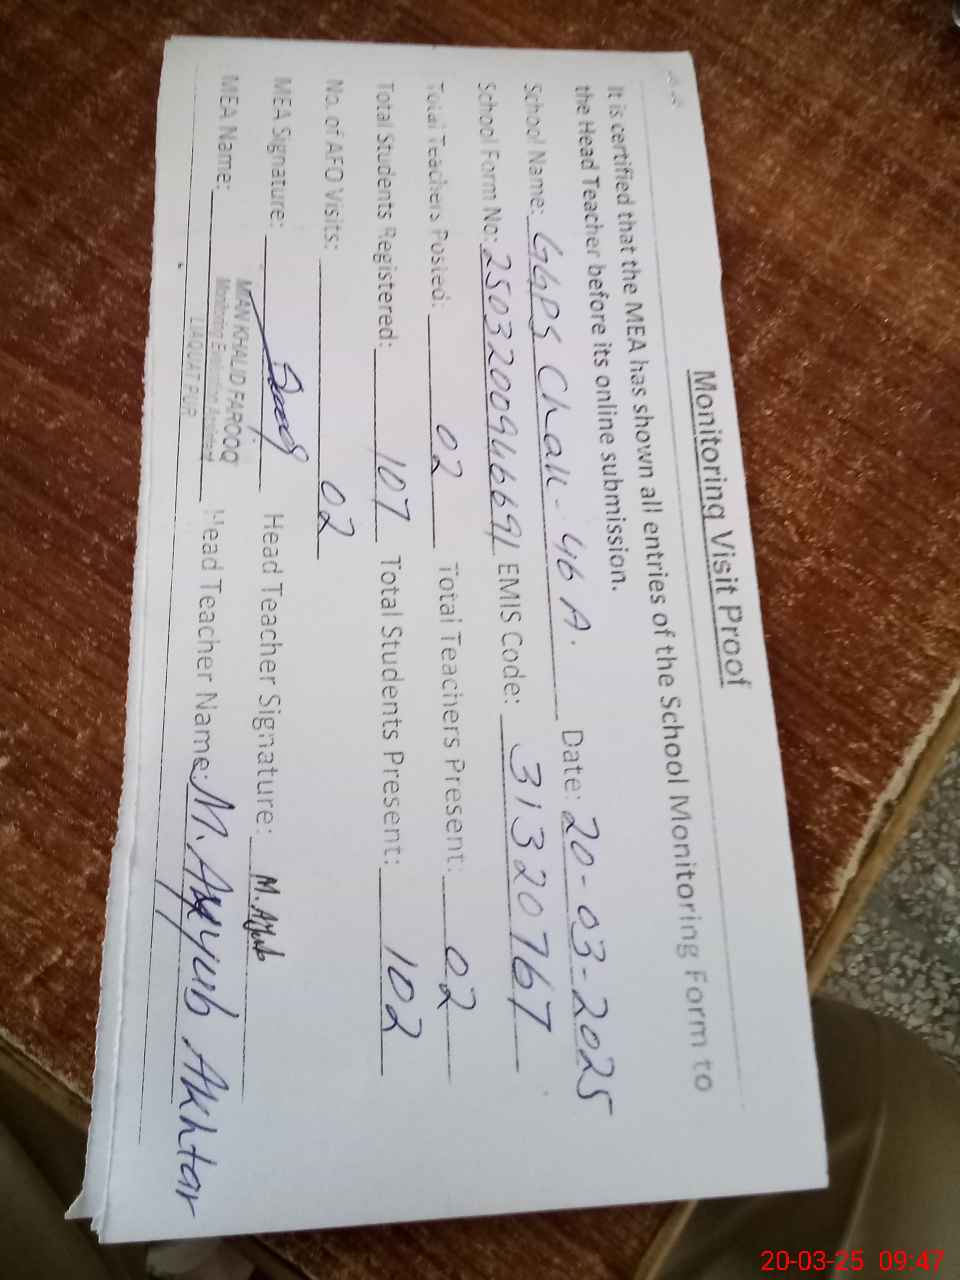 Monitoring Visit Proof
It is certified that the MEA has shown all entries of the School Monitoring Form to
the Head Teacher before its online submission.
School Name: GGPS Chak-46 A. Date: 20-03-2025
School Form No: 25032009466691 EMIS Code: 31320767
Total Teachers Posted: 02 Total Teachers Present: 02
Total Students Registered: 107 Total Students Present: 102
No. of AFO Visits: 02
MEA Signature: Head Teacher Signature: M. Ayub
MEA Name: MIAN KHALID FAROOQ Head Teacher Name: M. Ayyub Akhtar
Monitoring Evaluation Assistant
LIAQUAT PUR
20-03-25 09:47